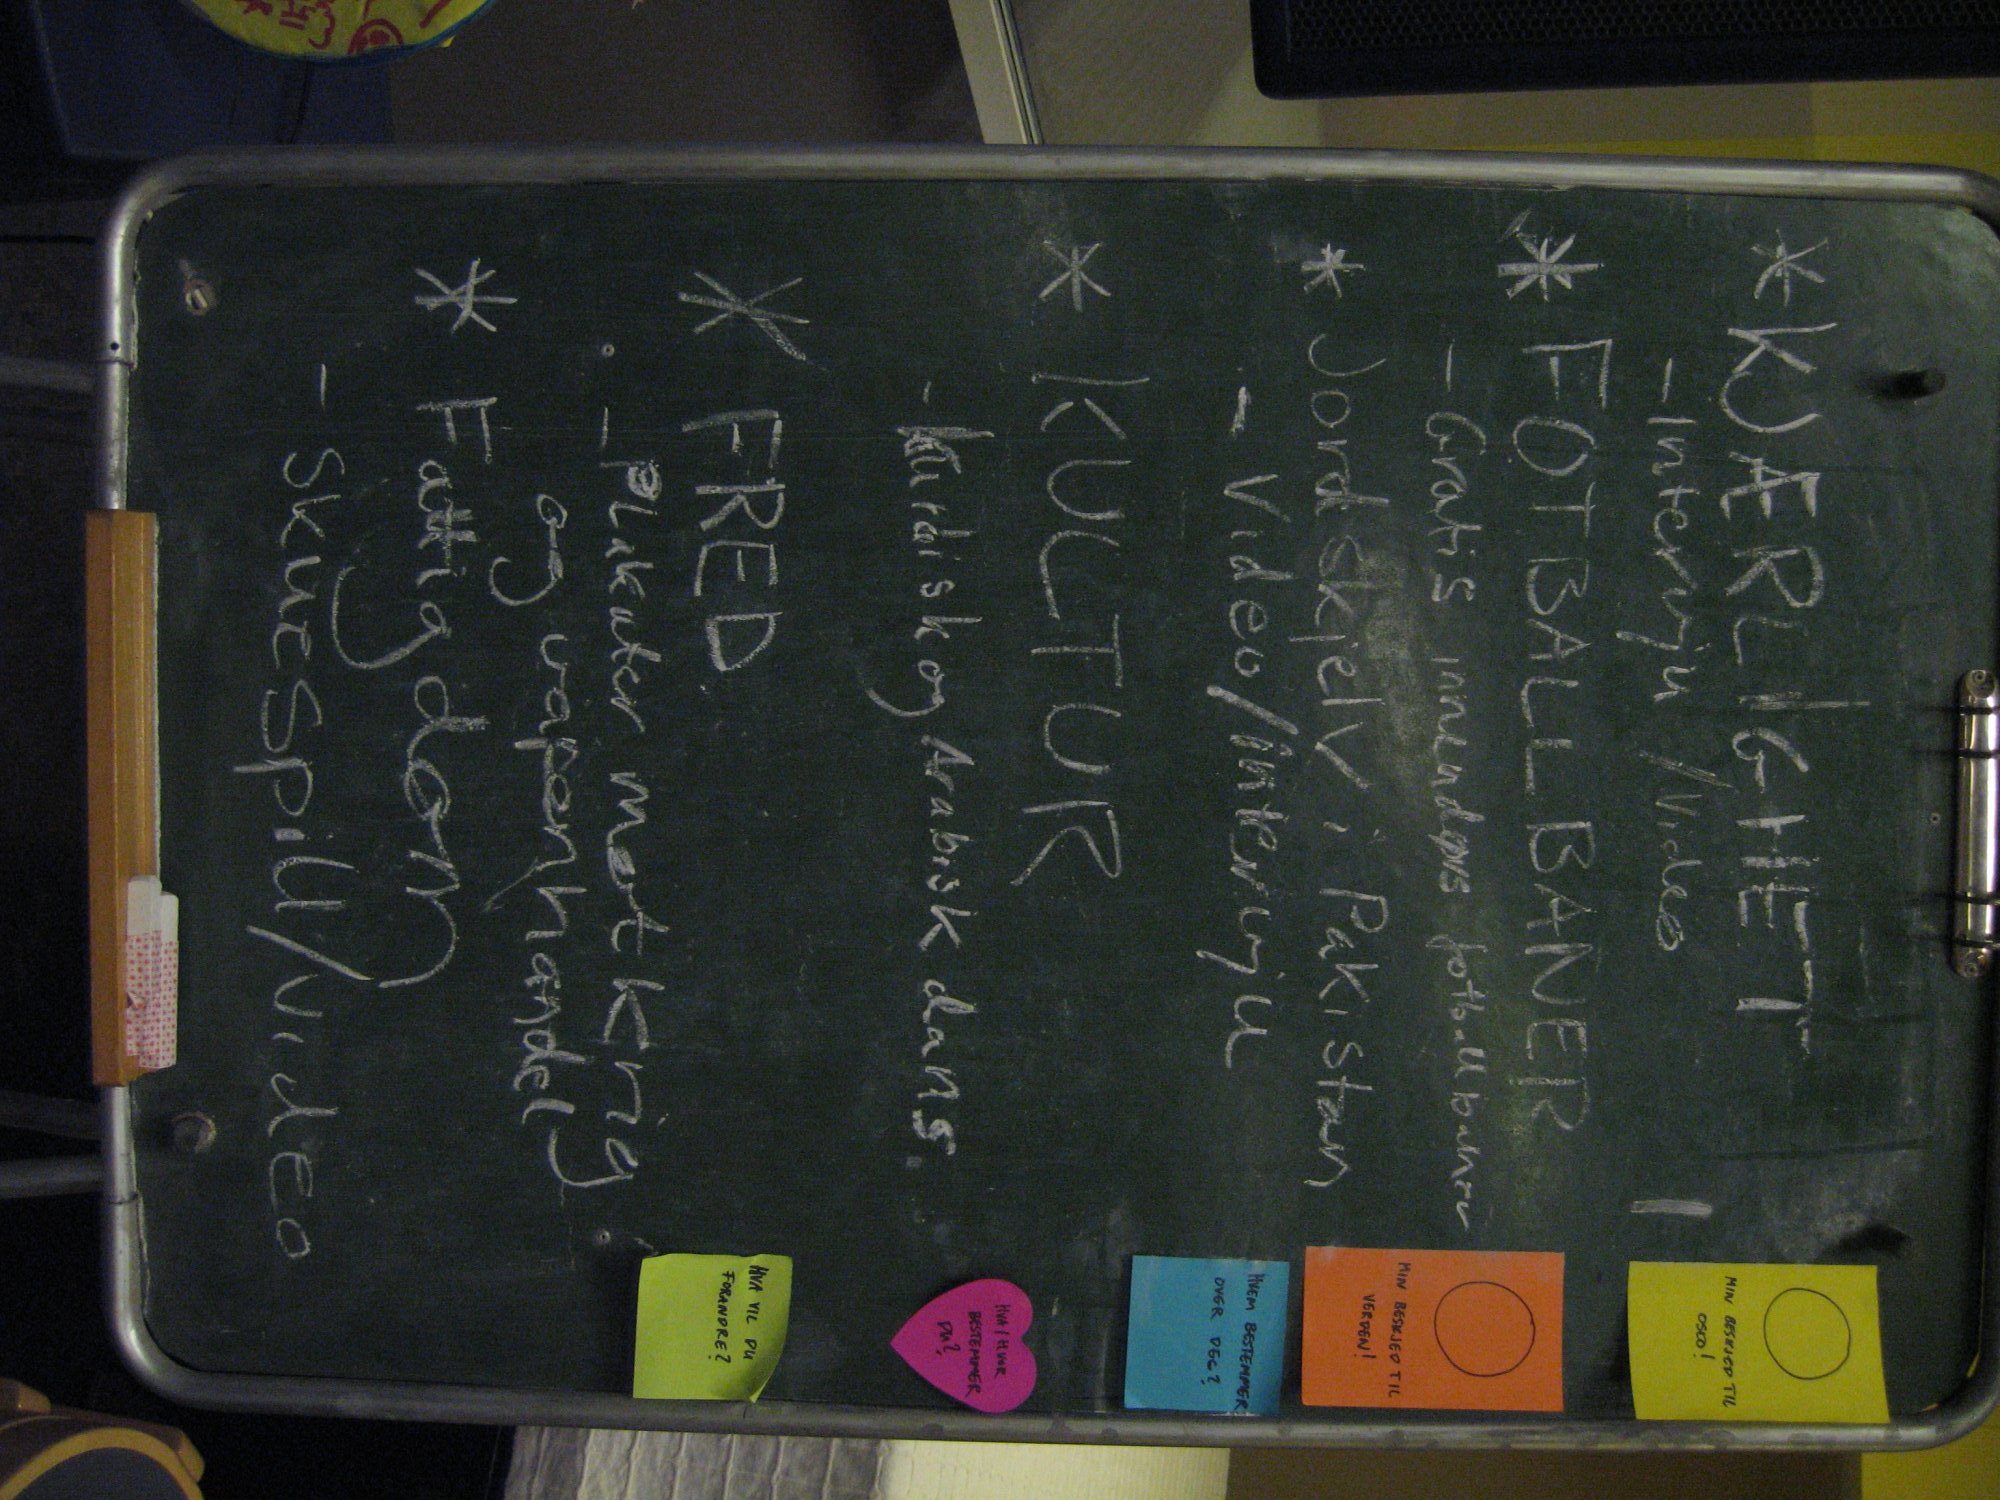 * KJÆRLIGHET
- Intervju / Video
* FOTBALLBANER
- Gratis innendørs fotballbaner
* Jordskjelv i Pakistan
- Video/Intervju
* KULTUR
- Kurdisk og Arabisk dans
* FRED
- Plakater mot krig
og våpenhandel
* Fattigdom
- skuespill/video
MIN BESKJED TIL
OSLO!
MIN BESKJED TIL
VERDEN!
HVEM BESTEMMER
OVER DEG?
HVA/HVOR
BESTEMMER
DU?
HVA VIL DU
FORANDRE?